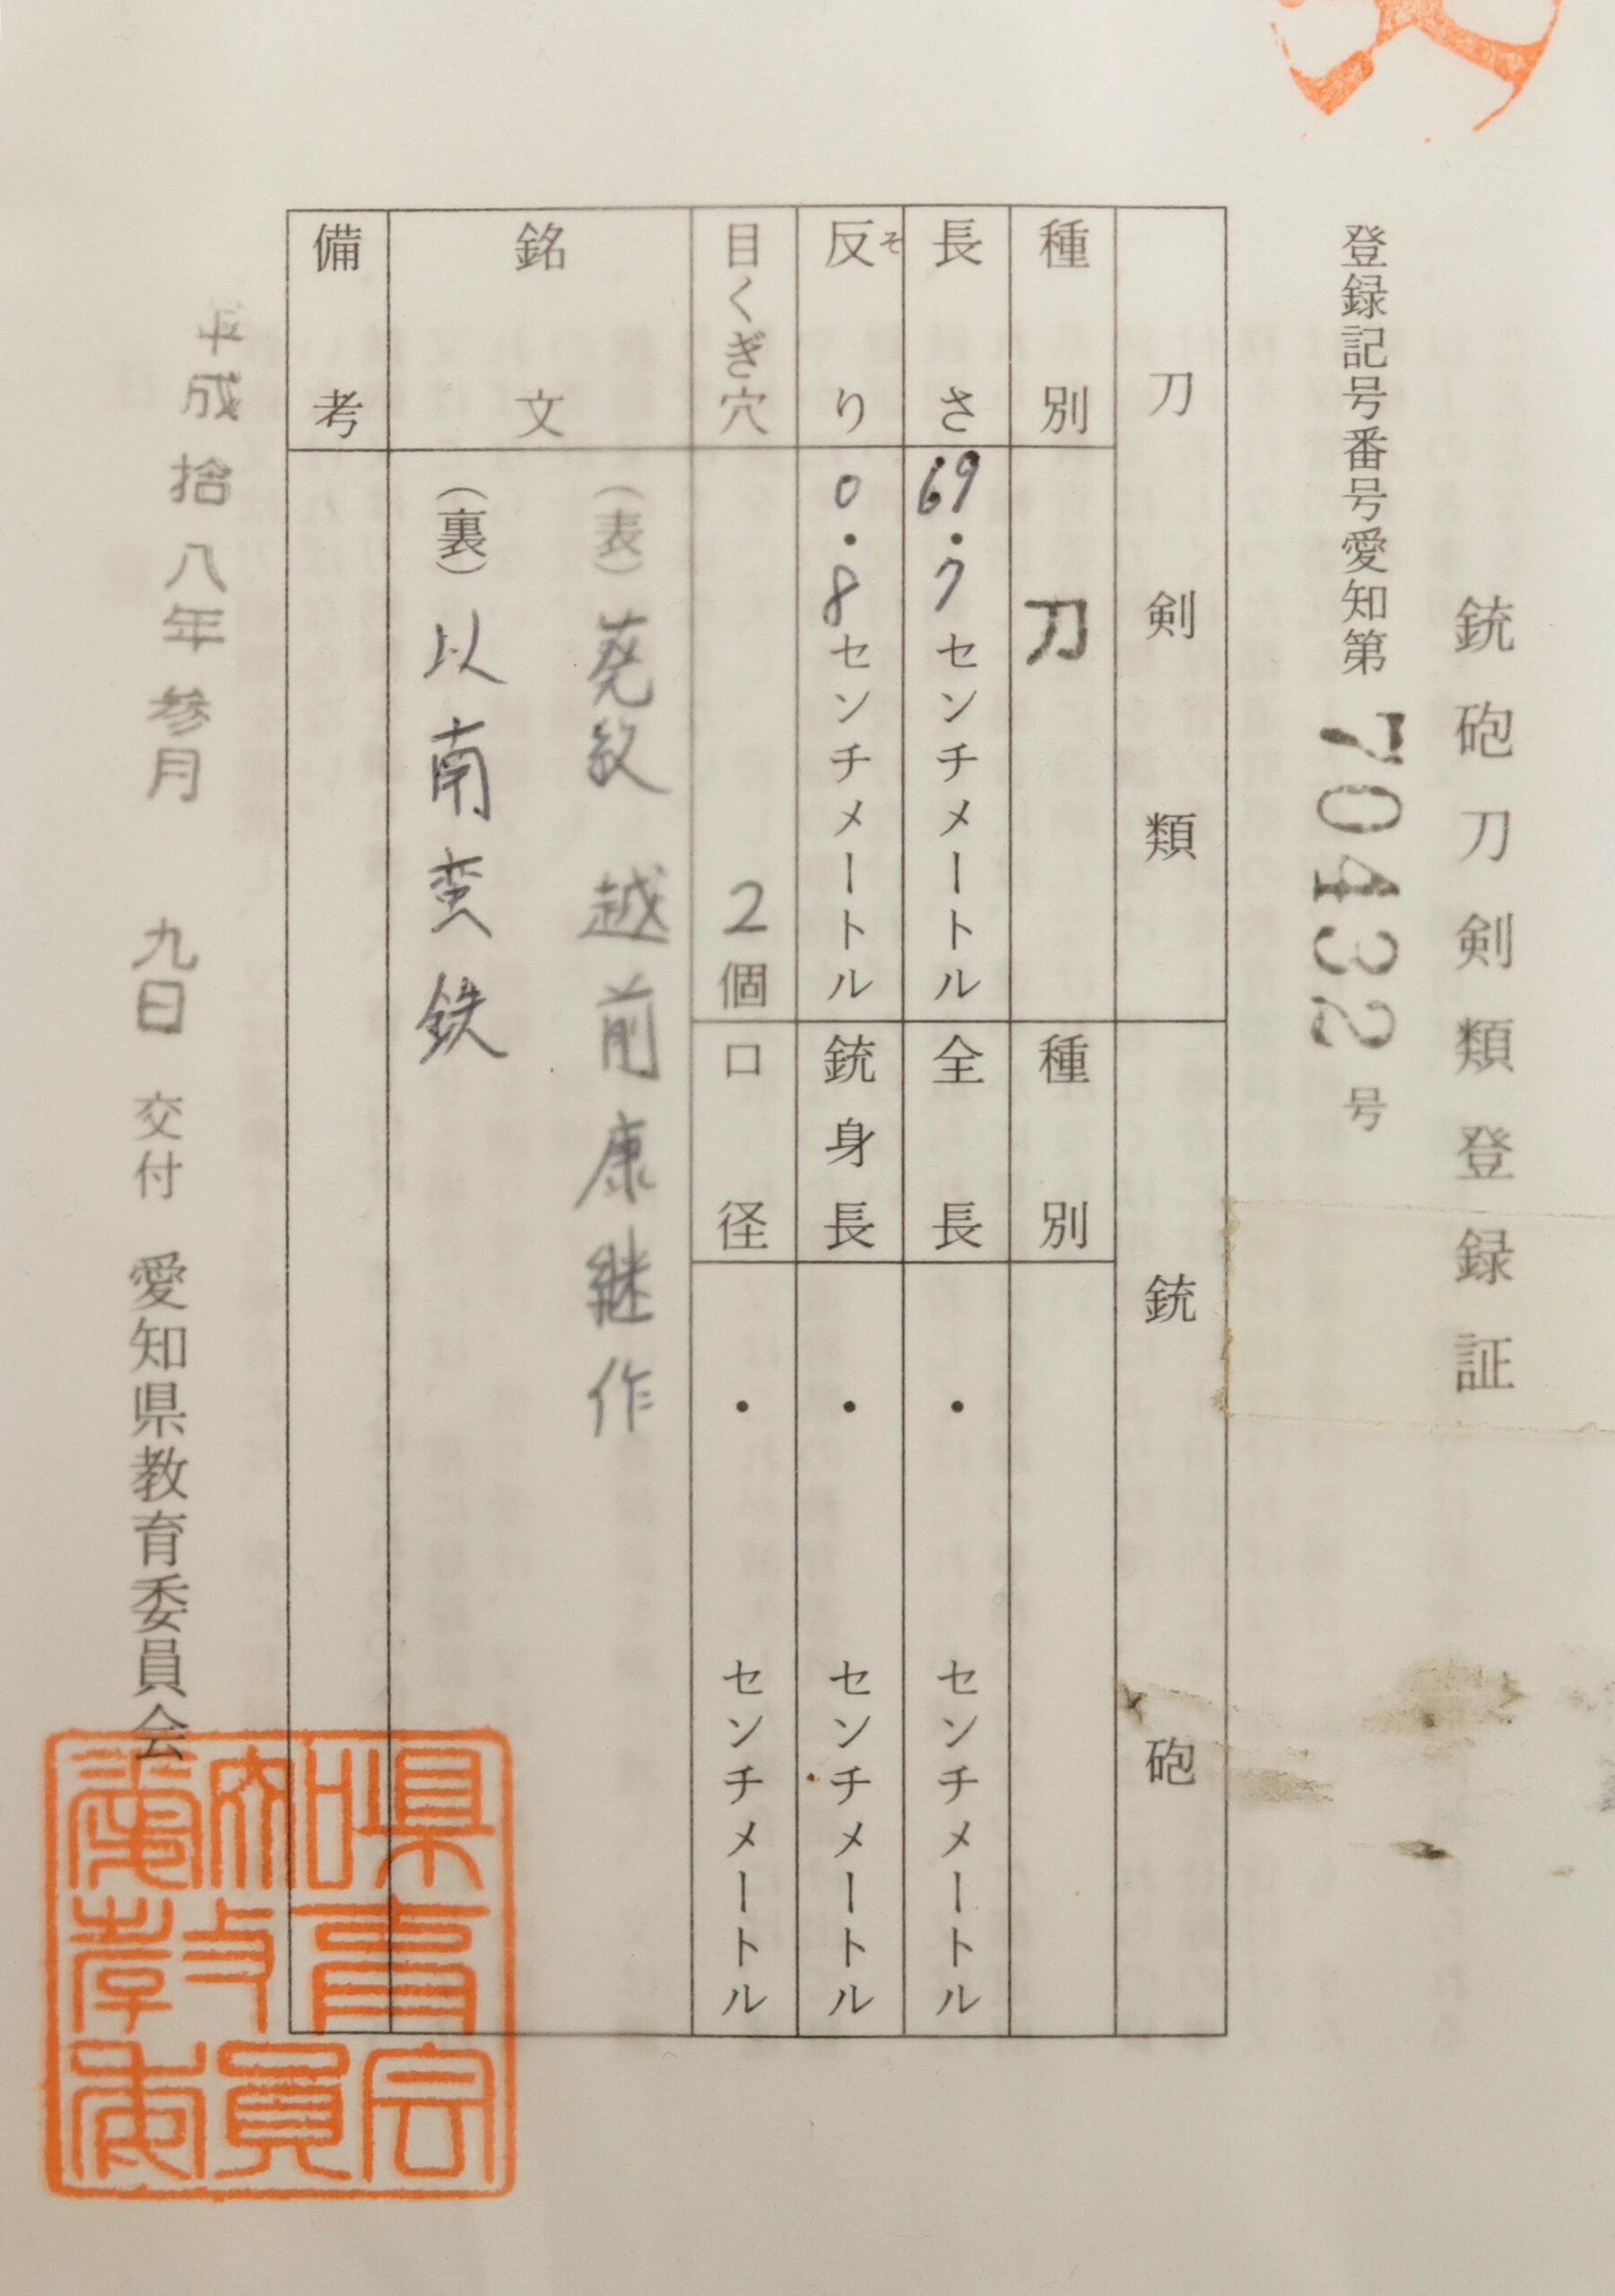 銃砲刀剣類登録証
登録記号番号愛知第70432号
刀剣類
銃砲
種別
刀
種別
長さ
69.7センチメートル
全長
・センチメートル
反り
そ
0.8センチメートル
銃身長
・センチメートル
目くぎ穴
2個
口径
・センチメートル
銘文
(表)葵紋 越前康継作
(裏)以南蛮鉄
備考
平成拾八年参月九日交付 愛知県教育委員会
愛知県
教育
委員会